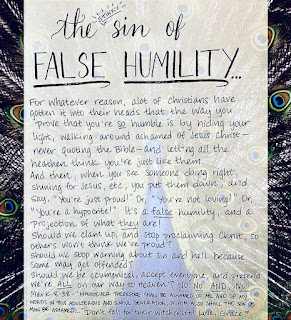 the sin of
FALSE HUMILITY...
For whatever reason, alot of christians have
gotten it into their heads that the way you
"Prove that you're so humble is by hiding your
light, walking around ashamed of Jesus Christ—
never quoting the Bible—and letting all the
heathen think you're just like them.
And then, when you see someone doing right,
shining for Jesus, etc, you put them down, and
say, "You're just proud!" Or, "You're not loving!" Or,
"You're a hypocrite!" It's a false humility, and a
projection of what they are!
Should we clam up and stop proclaiming Christ, so
others won't think we're proud?
Should we stop warning about sin and hell because
some may get offended?
Should we be ecumenical, accept everyone, and pretend
we're all on our way to heaven? NO, NO, AND, NO!
Mark 8:38 - WHOSOEVER THEREFORE SHALL BE ASHAMED OF ME AND OF MY
WORDS IN THIS ADULTEROUS AND SINFUL GENERATION; OF HIM ALSO SHALL THE SON OF
MAN BE ASHAMED...
Don't fall for their witchcraft! Love,